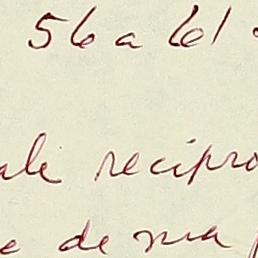 56 a 61
ale recipro
e de ma